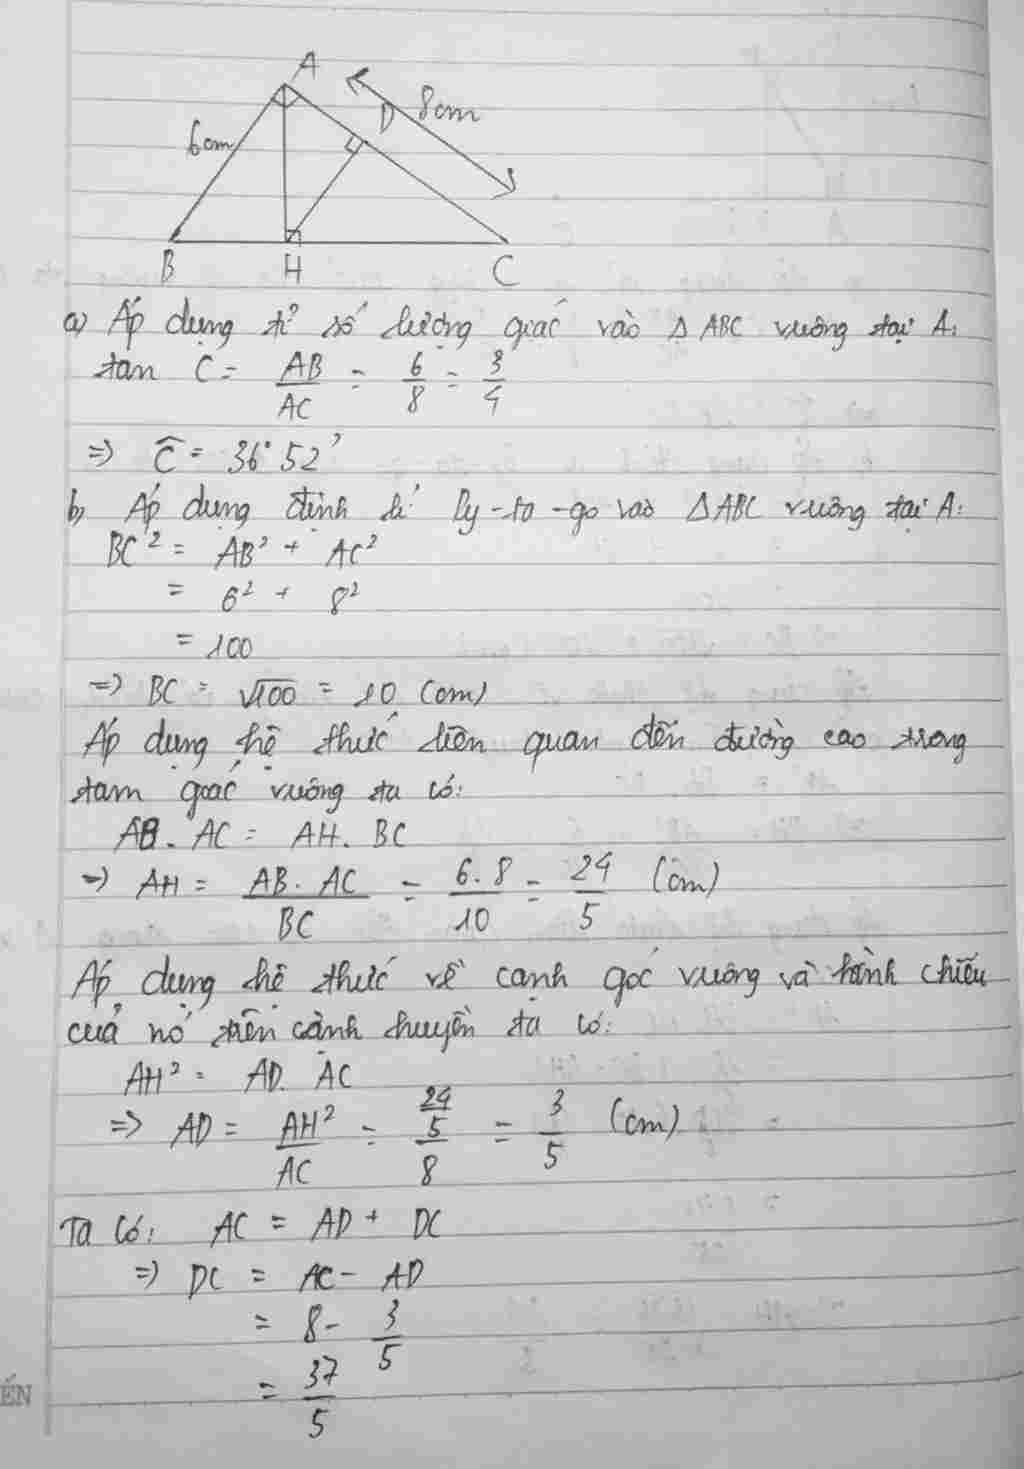 A
D
8cm
6cm
B
H
C
a) Áp dụng tỉ số lượng giác vào Δ ABC vuông tại A:
tan C = AB/AC = 6/8 = 3/4
=> Ĉ = 36° 52'
b) Áp dụng định lí Py-ta-go vào Δ ABC vuông tại A:
BC² = AB² + AC²
= 6² + 8²
= 100
=> BC = √100 = 10 (cm)
Áp dụng hệ thức liên quan đến đường cao trong
tam giác vuông ta có:
AB. AC = AH. BC
=> AH = AB. AC/BC = 6.8/10 = 24/5 (cm)
Áp dụng hệ thức về cạnh góc vuông và hình chiếu
của nó trên cạnh huyền ta có:
AH² = AD. AC
=> AD = AH²/AC = 24/5/8 = 3/5 (cm)
Ta có: AC = AD + DC
=> DC = AC - AD
= 8 - 3/5
= 37/5
ẾN